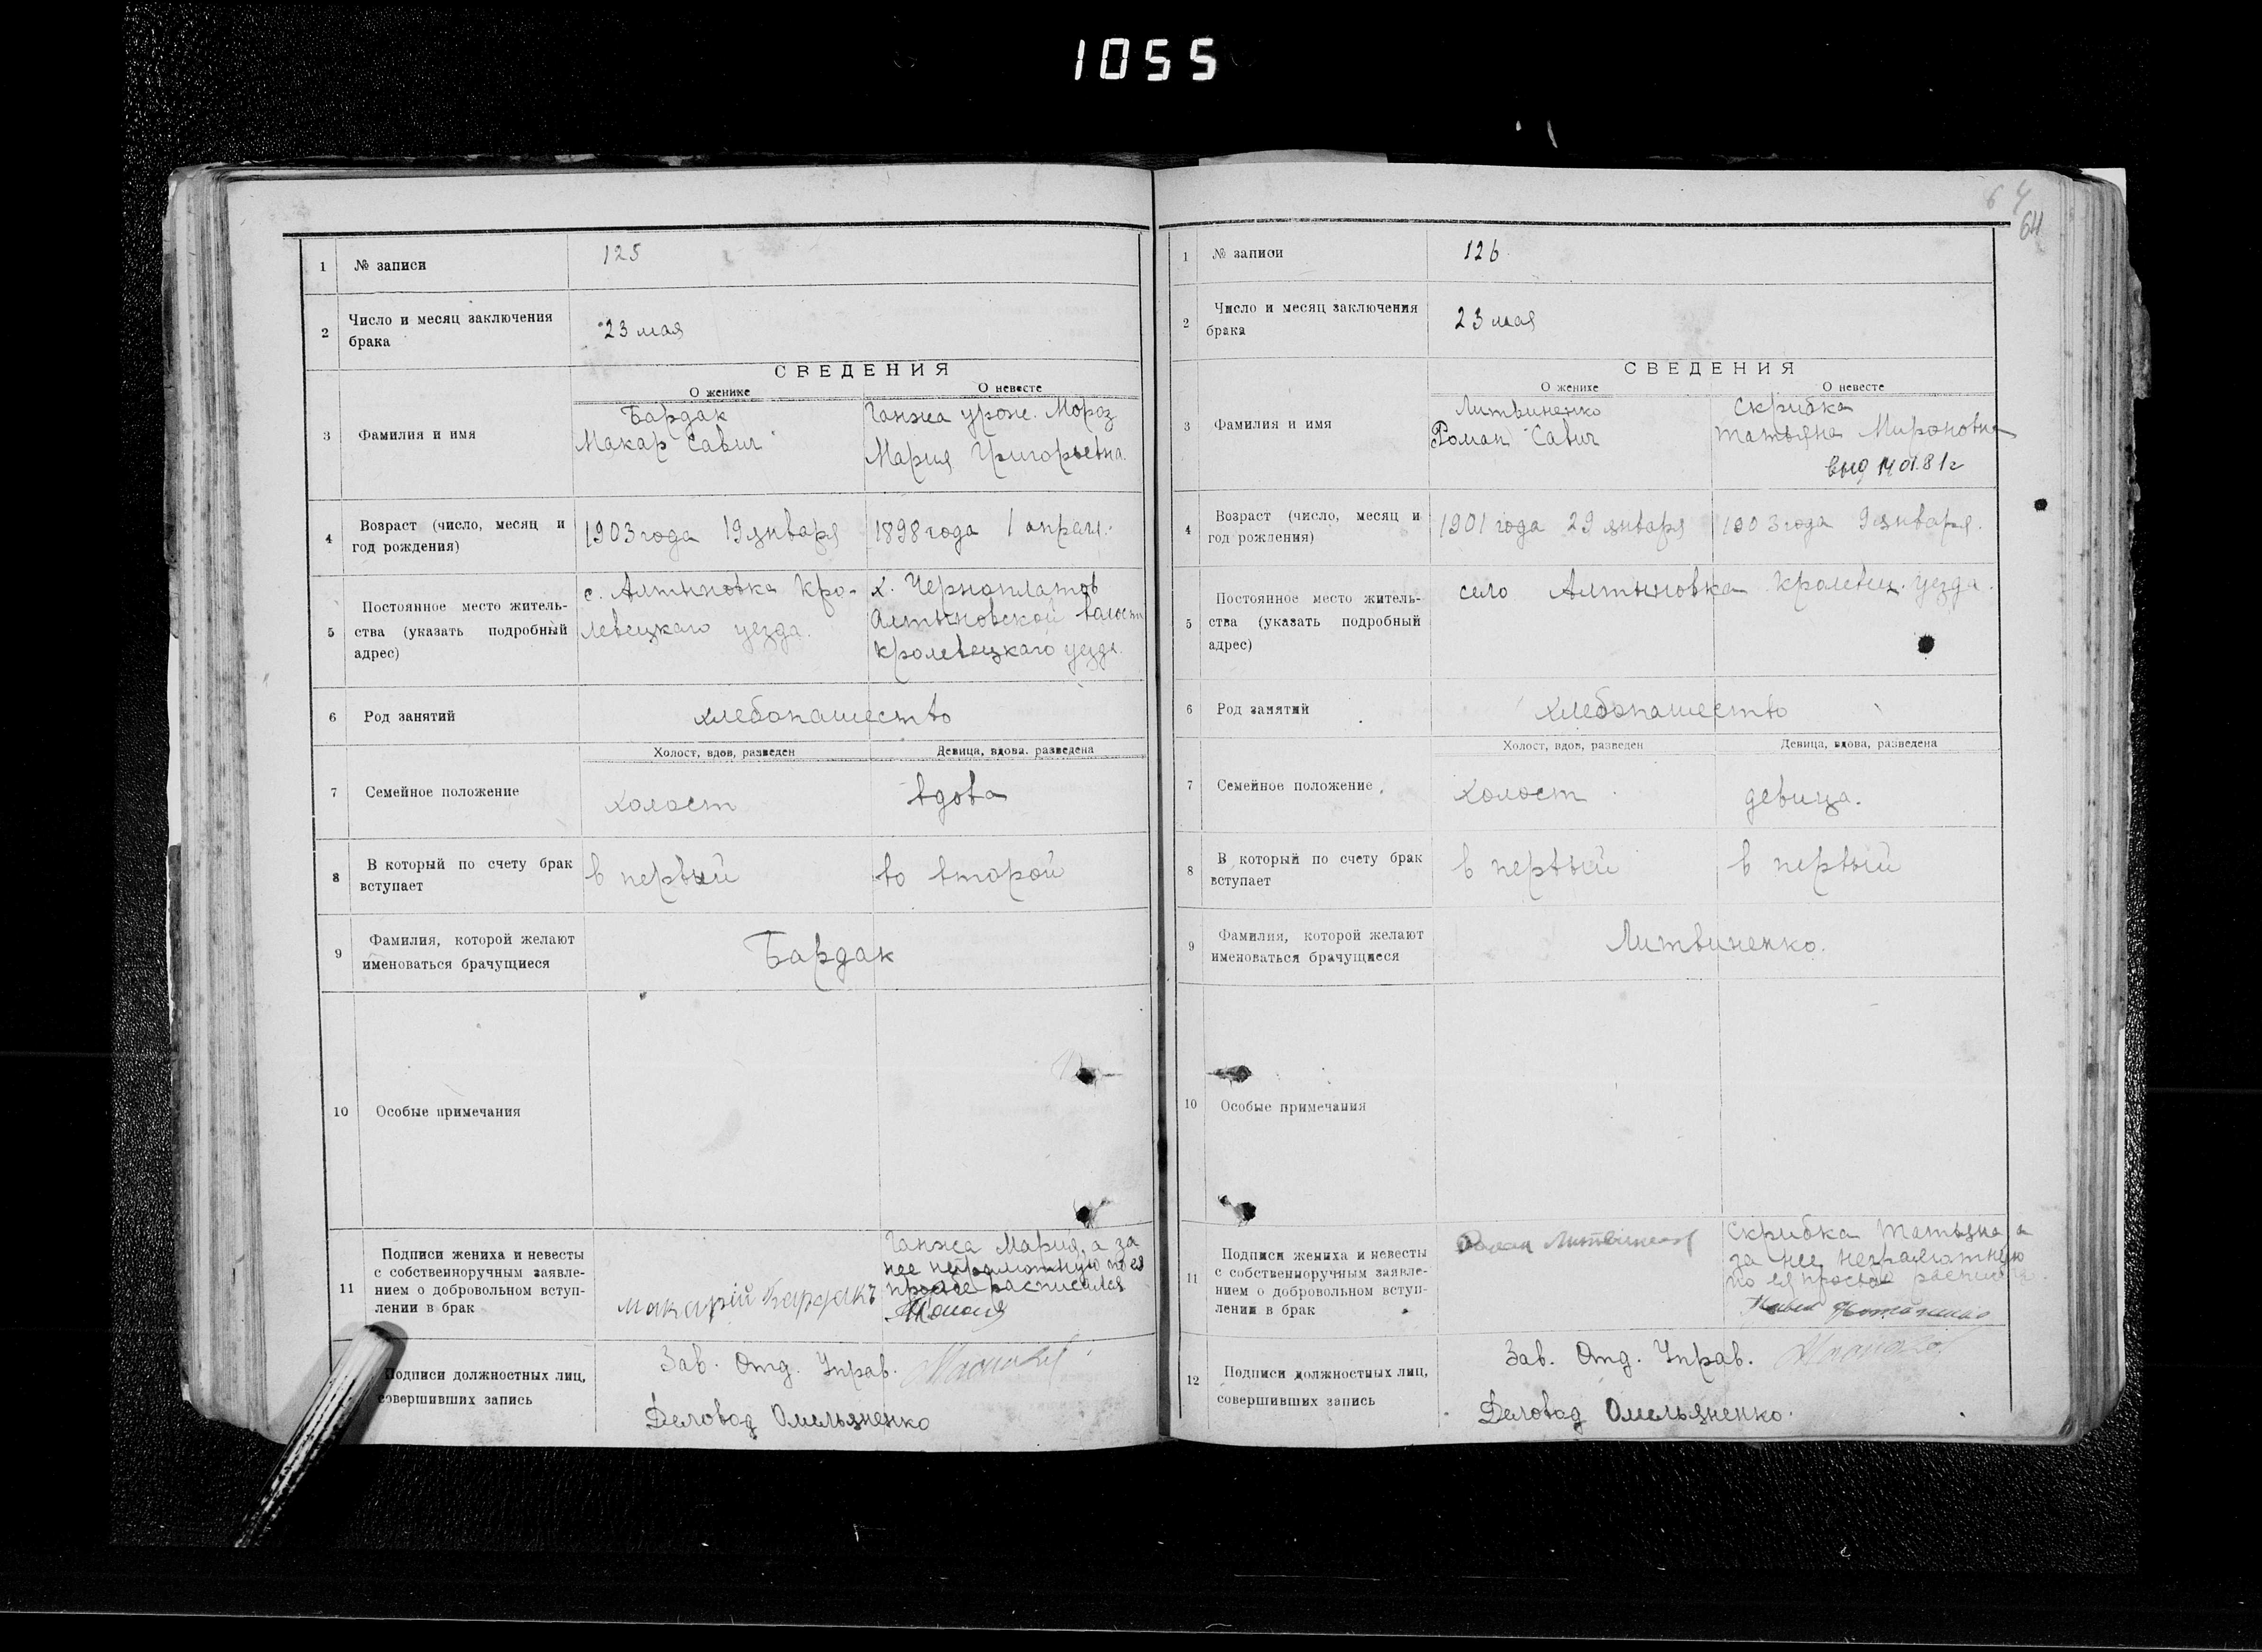 1055
1 № записи 125
2 Число и месяц заключения брака 23 мая
СВЕДЕНИЯ
О женихе О невесте
3 Фамилия и имя
Бардак
Макар Савич
Ганжа урож. Мороз
Мария Григорьевна.
4 Возраст (число, месяц и
год рождения)
1903 года 19 января 1898 года 1 апреля.
5 Постоянное место житель-
ства (указать подробный
адрес)
с. Алтыновка Кро-
левецкаго уезда.
х. Черноплатов
Алтыновской волости
Кролевецкаго уезда.
6 Род занятий хлебопашество
Холост, вдов, разведен Девица, вдова. разведена
7 Семейное положение холост вдова
8 В который по счету брак
вступает
в первый во второй
9 Фамилия, которой желают
именоваться брачущиеся
Бардак
10 Особые примечания
11 Подписи жениха и невесты
с собственноручным заявле-
нием о добровольном вступ-
лении в брак
Макарій Бардакъ
Ганжа Мария, а за
нее неграмотную по ея
просьбе расписался
Подписи должностных лиц,
совершивших запись
Зав. Отд. Управ.
Деловод Омельяненко
64
64
1 № записи 126
2 Число и месяц заключения
брака
23 мая
СВЕДЕНИЯ
О женихе О невесте
3 Фамилия и имя
Литвиненко
Роман Савич
Скрибка
Татьяна Мироновна
выд 14 01.81г
4 Возраст (число, месяц и
год рождения)
1901 года 29 января 1903 года 9 января.
5 Постоянное место житель-
ства (указать подробный
адрес)
село Алтыновка Кролевец. уезда.
6 Род занятий хлебопашество
Холост, вдов, разведен Девица, вдова, разведена
7 Семейное положение холост девица.
8 В который по счету брак
вступает
в первый в первый
9 Фамилия, которой желают
именоваться брачущиеся
Литвиненко.
10 Особые примечания
11 Подписи жениха и невесты
с собственноручным заявле-
нием о добровольном вступ-
лении в брак
Роман Литвиненко
Скрибка Татьяна, а
за нее неграмотную
по ея просьбе расписался
12 Подписи должностных лиц,
совершивших запись
Зав. Отд. Управ.
Деловод Омельяненко.